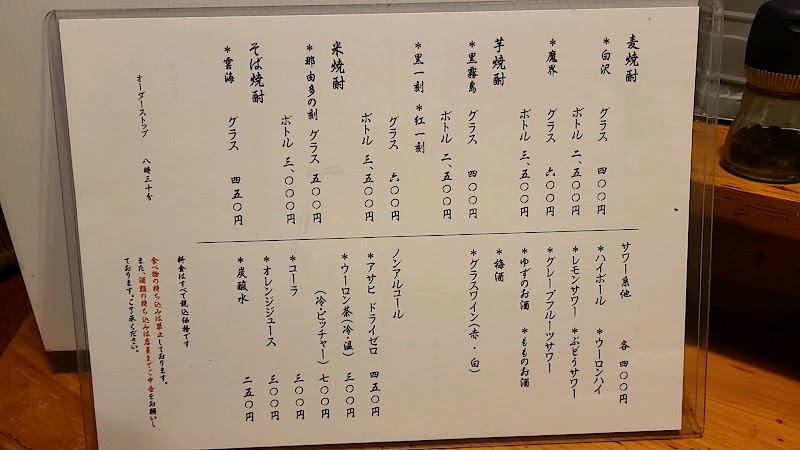 麦焼酎
*白沢 グラス 四〇〇円
ボトル 二、五〇〇円
*魔界 グラス 六〇〇円
ボトル 三、五〇〇円
芋焼酎
*黒霧島 グラス 四〇〇円
ボトル 二、五〇〇円
*黒一刻 *紅一刻
グラス 六〇〇円
ボトル 三、五〇〇円
米焼酎
*那由多の刻 グラス 五〇〇円
ボトル 三、〇〇〇円
そば焼酎
*雲海 グラス 四五〇円
オーダーストップ 八時三十分
サワー系他 各 四〇〇円
*ハイボール *ウーロンハイ
*レモンサワー *ぶどうサワー
*グレープフルーツサワー
*ゆずのお酒 *もものお酒
*梅酒
*グラスワイン(赤・白)
ノンアルコール
*アサヒ ドライゼロ 四五〇円
*ウーロン茶(冷・温) 三〇〇円
(冷・ピッチャー) 七〇〇円
*コーラ 三〇〇円
*オレンジジュース 三〇〇円
*炭酸水 二五〇円
料金はすべて税込価格です
食べ物の持ち込みは禁止しております。
また、酒類の持ち込みは店員までご申告をお願いし
ております。ご了承ください。